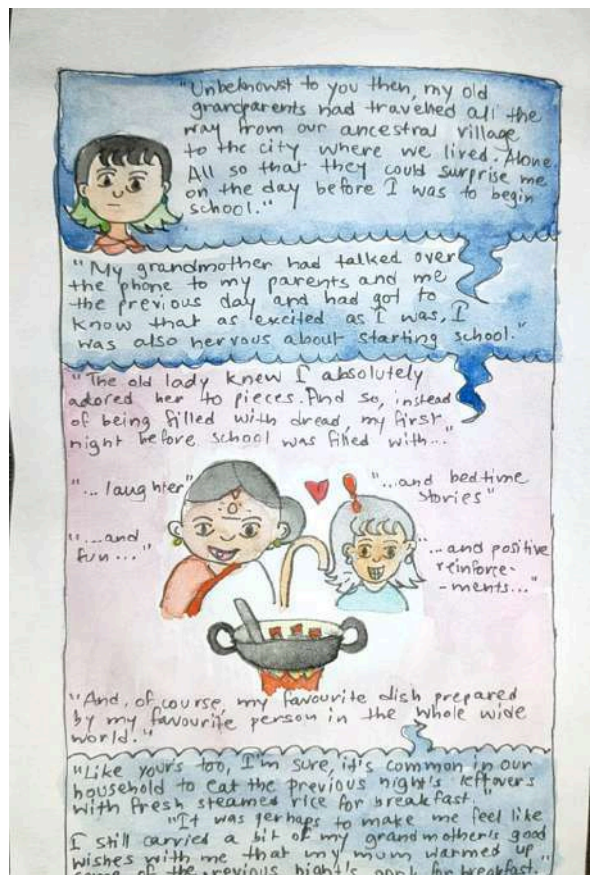 "Unbeknowst to you then, my old
grandparents had travelled all the
way from our ancestral village
to the city where we lived. Alone.
All so that they could surprise me
on the day before I was to begin
school."
"My grandmother had talked over
the phone to my parents and me
the previous day and had got to
know that as excited as I was, I
was also nervous about starting school."
"The old lady knew I absolutely
adored her to pieces. And so, instead
of being filled with dread, my first
night before school was filled with..."
"...laughter"
"...and bedtime
stories"
"...and
fun..."
"...and positive
reinforce-
-ments..."
"And, of course, my favourite dish prepared
by my favourite person in the whole wide
world."
"Like yours too, I'm sure, it's common in our
household to eat the previous night's leftovers
with fresh steamed rice for breakfast.
"It was perhaps to make me feel like
I still carried a bit of my grandmother's good
wishes with me that my mum warmed up
some of the previous night's pork for breakfast."